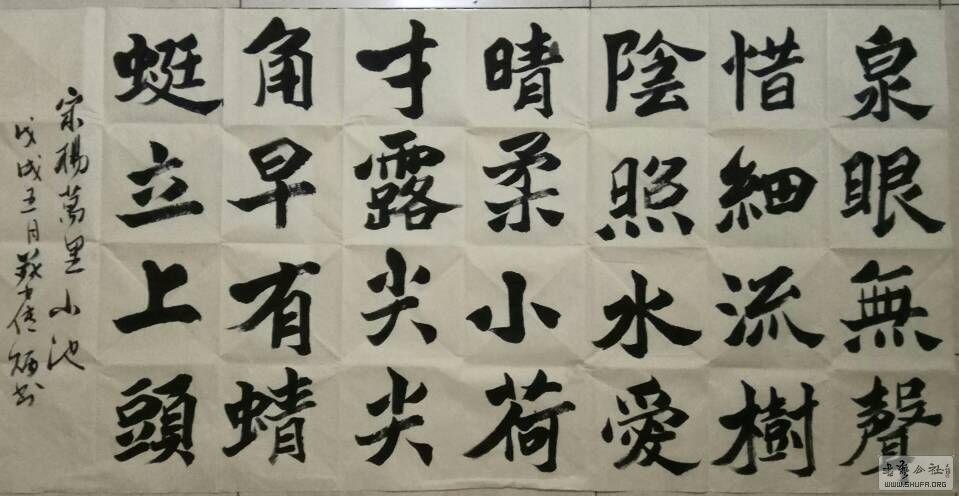 泉眼無聲
惜細流樹
陰照水愛
晴柔小荷
才露尖尖
角早有蜻
蜓立上頭
宋楊萬里小池
戊戌五月書
公社
WWW.SHUFA.ORG